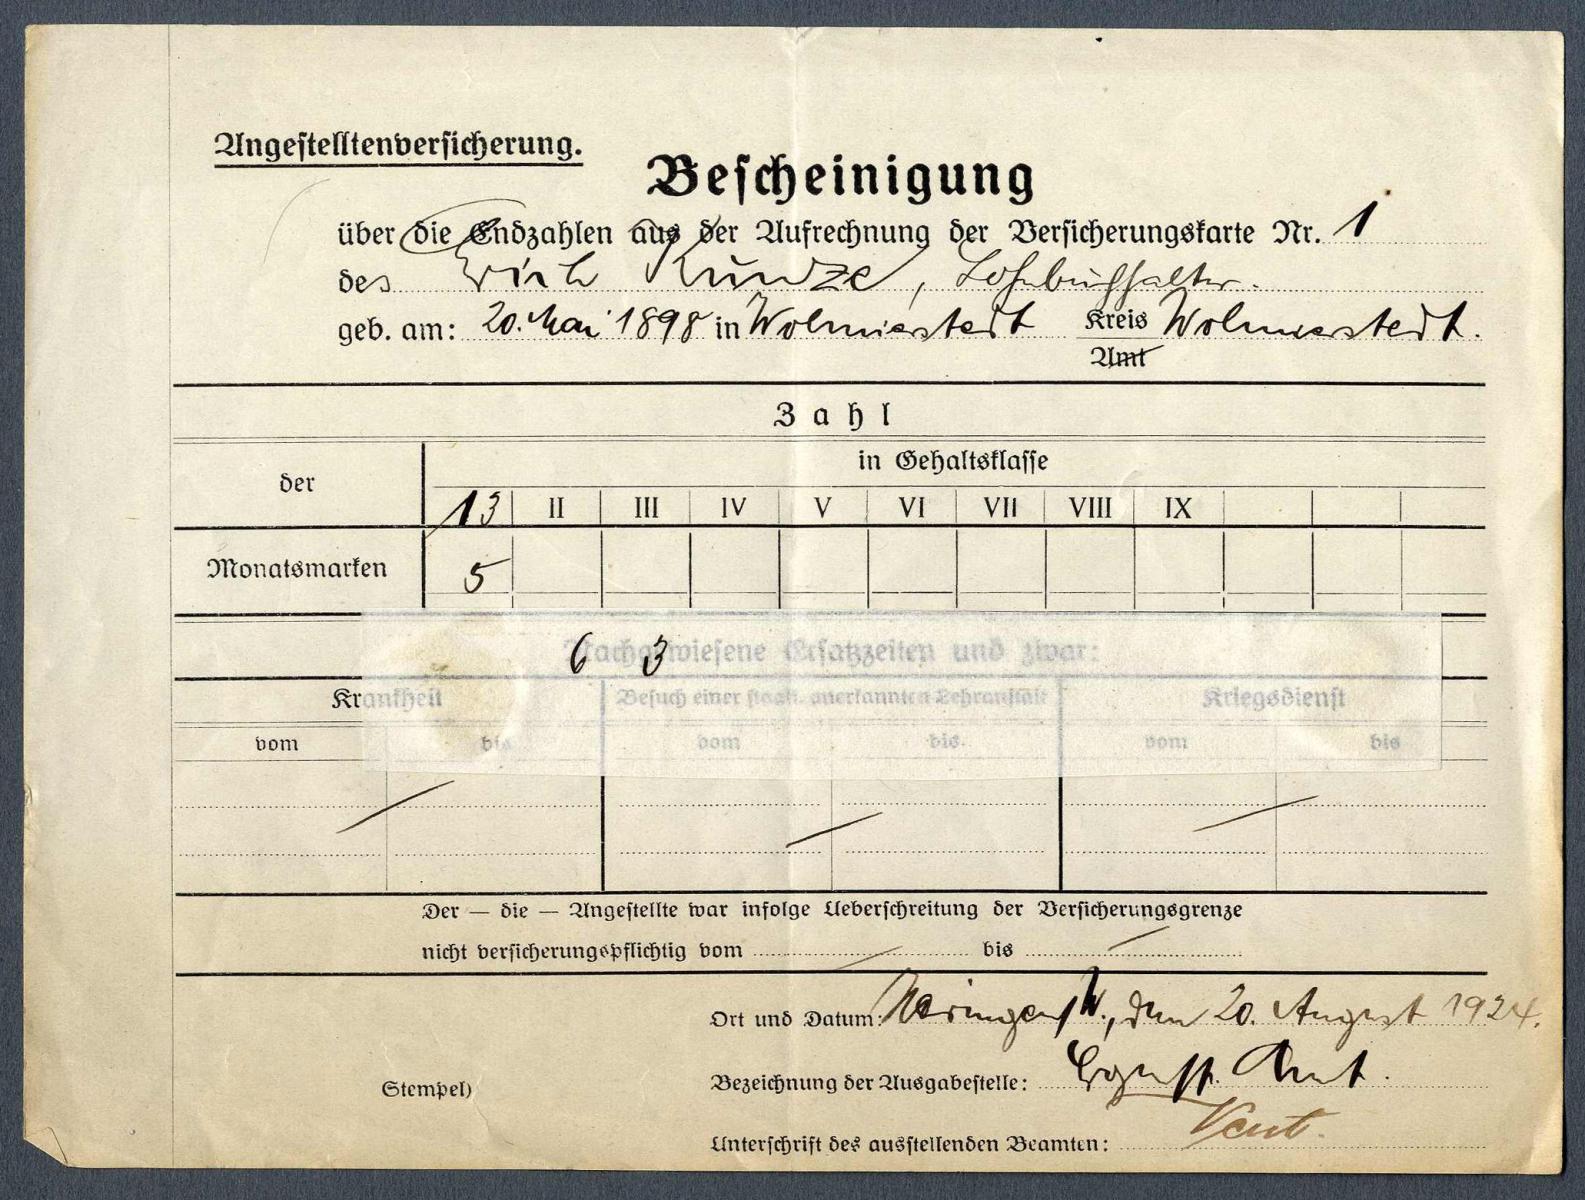 Angestelltenversicherung.
Bescheinigung
über die Endzahlen aus der Aufrechnung der Versicherungskarte Nr. 1
des Erich Kunze, Lohnbuchhalter.
geb. am: 20. Mai 1898 in Wolmirstedt Kreis Wolmirstedt.
Amt
Zahl
der
in Gehaltsklasse
13 II III IV V VI VII VIII IX
Monatsmarken 5
6 3
Nachgewiesene Ersatzzeiten und zwar:
Krankheit Besuch einer staatl. anerkannten Lehranstalt Kriegsdienst
vom bis vom bis vom bis
Der — die — Angestellte war infolge Ueberschreitung der Versicherungsgrenze
nicht versicherungspflichtig vom bis
Ort und Datum: W., den 20. August 1924.
Stempel)
Bezeichnung der Ausgabestelle: Amt.
Unterschrift des ausstellenden Beamten: